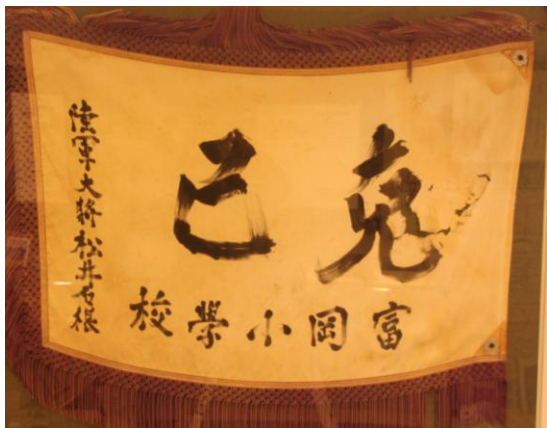 克己
富岡小學校
陸軍大将松井石根